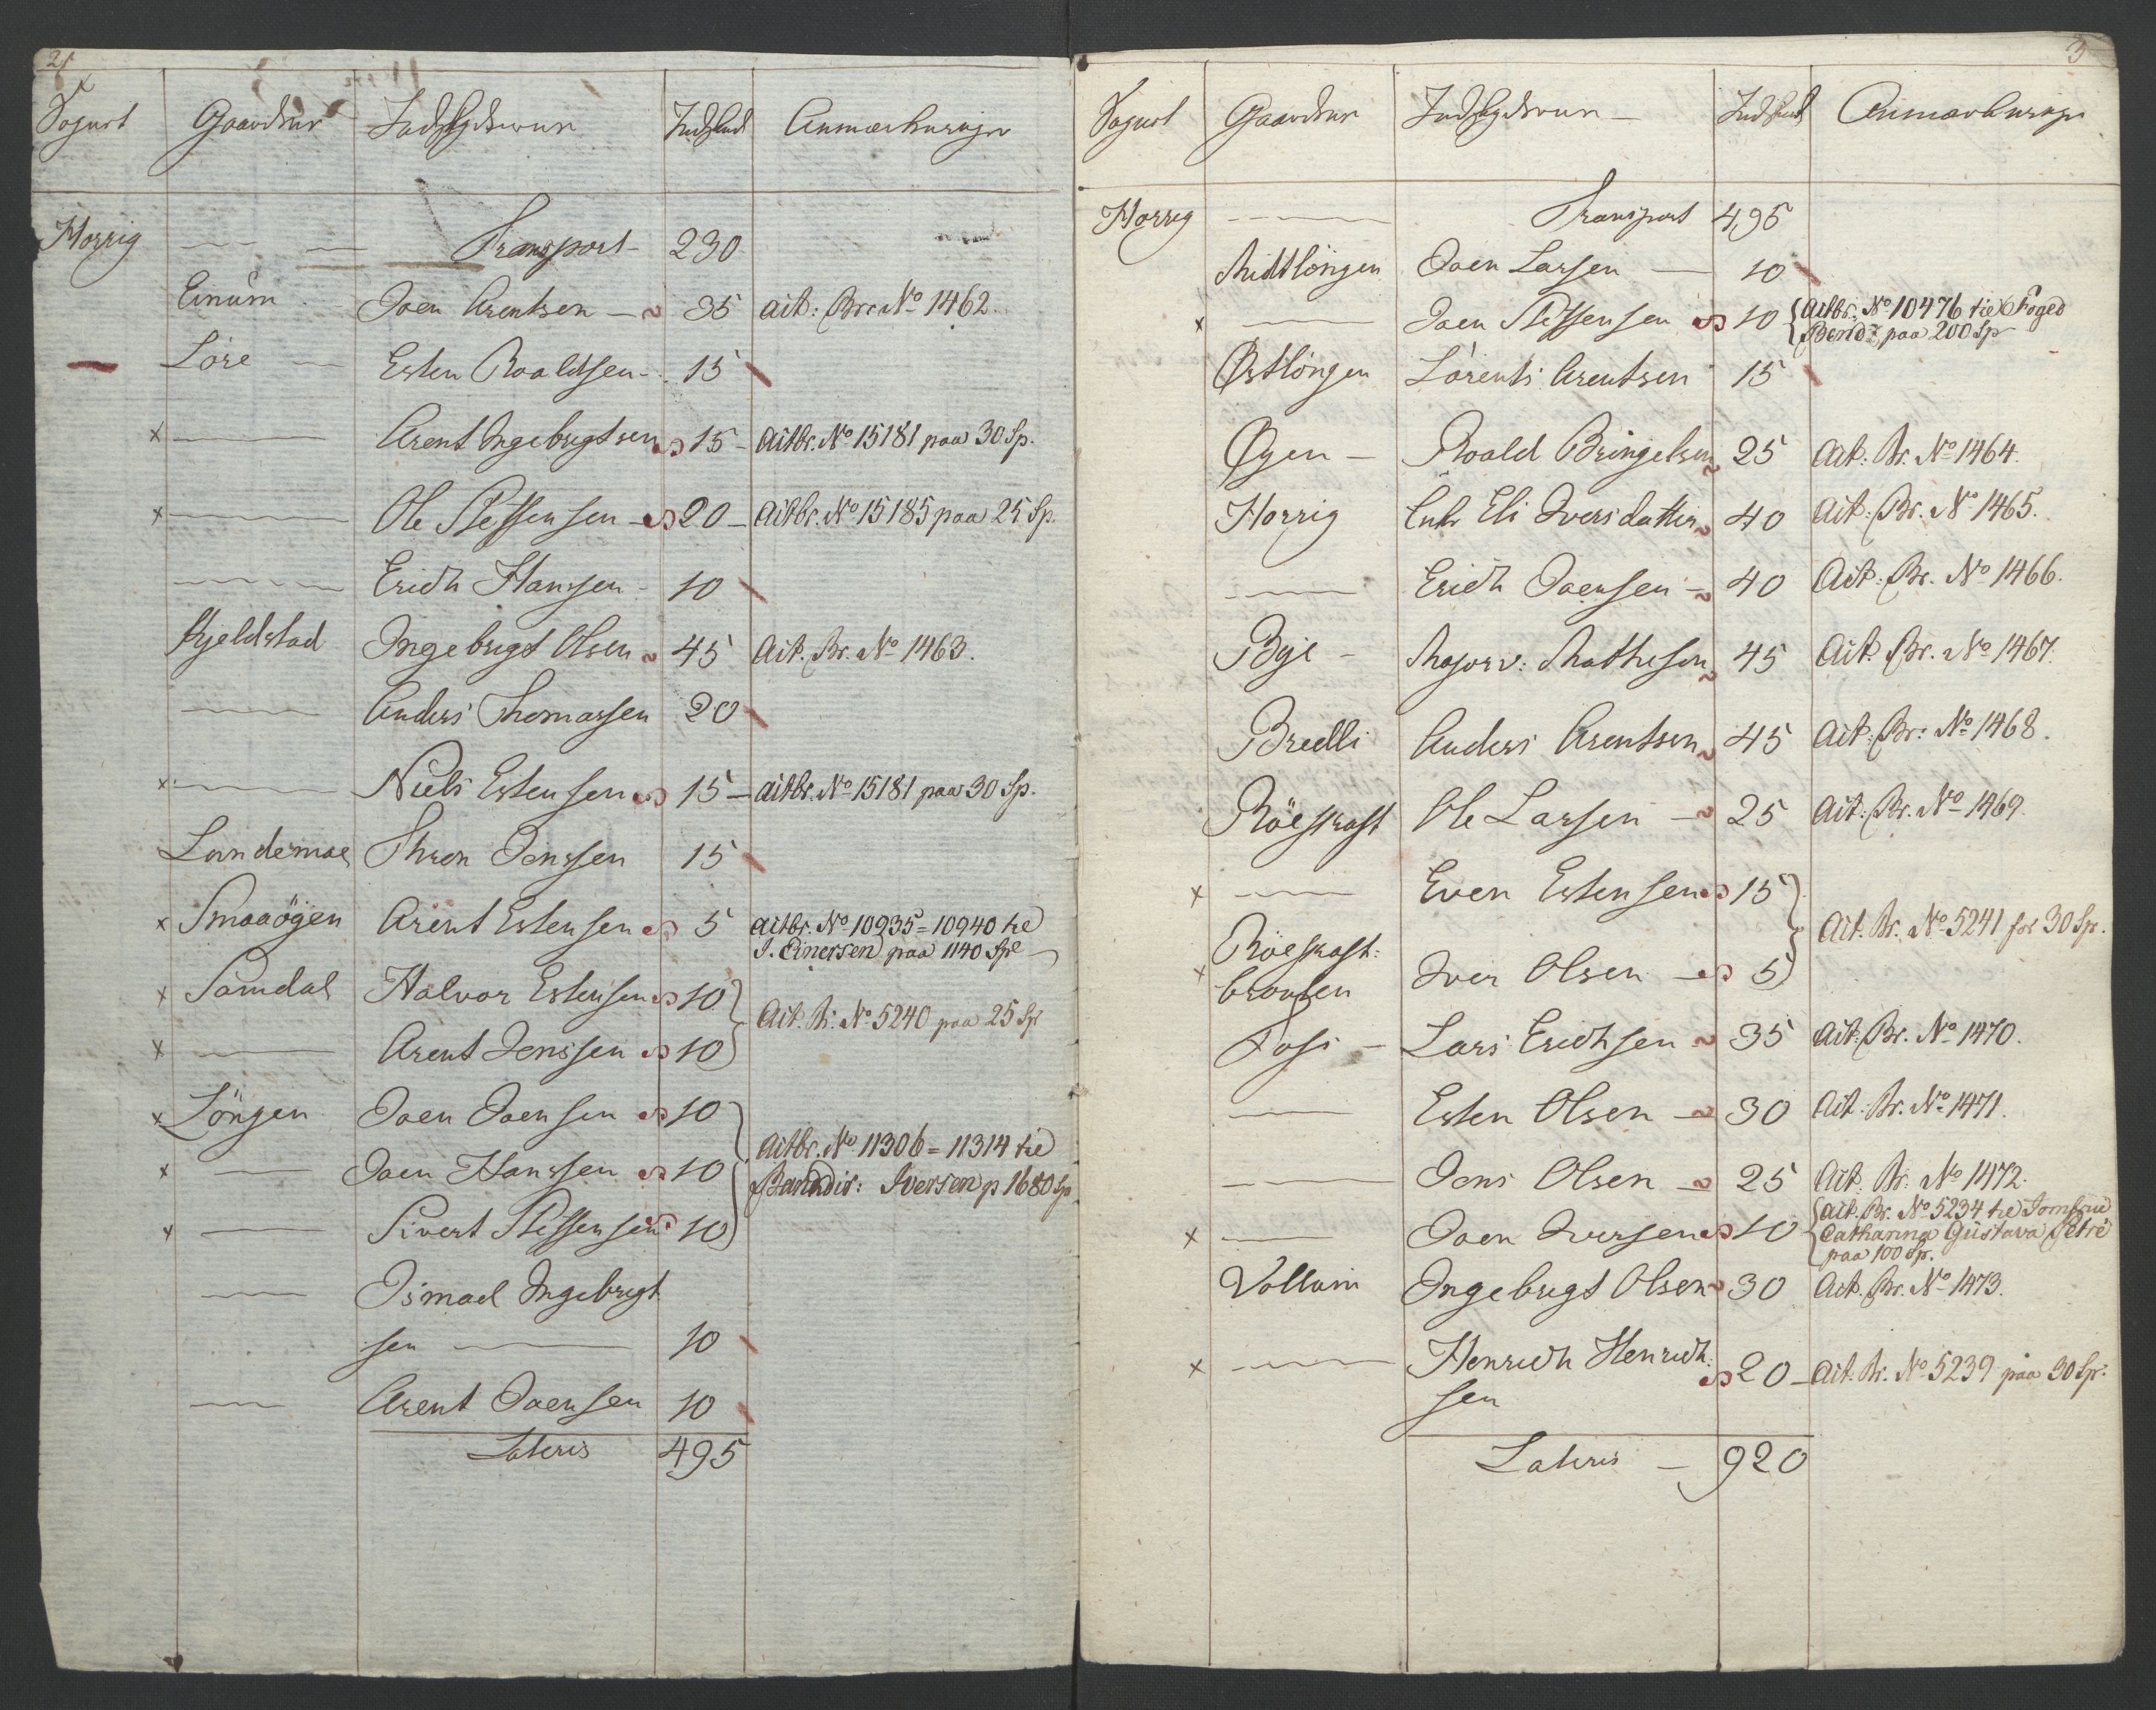 2
Sognet Gaardene Indskyderne Indskud Anmærkninger
Horrig Transport 230
Einum Joen Arentsen 35 Act: Br: No 1462.
Løre Esten Roaldsen 15
x Arent Ingebrigtsen 15 Actbr. No 15181 paa 30 Sp.
x Ole Steffensen 20 Actbr. No 15185 paa 25 Sp.
Erich Hanssen 10
Kjeldstad Ingebrigt Olsen 45 Act. Br. No 1463.
Anders Thomassen 20
x Niels Estensen 15 actbr. No 15181 paa 30 Sp.
Landemoe Thron Jenssen 15
x Smaaöyen Arent Estensen 5 actbr. No 10935=10940 til
J. Einersen paa 1140 Spe
x Samdal Halvor Estensen 10
Act. Br. No 5240 paa 25 Sp
x Arent Jenssen 10
x Löngen Joen Joensen 10
Actbr. No 11306=11314 til
x Joen Hanssen 10
Iversen p 1680 Sp
x Sivert Steffensen 10
Ismael Ingebrigt
sen 10
Arent Joensen 10
Lateris 495
3
Sognet Gaardene Indskyderne Indskud Anmærkninger
Horrig Transport 495
Midtlöngen Joen Larsen 10
x Joen Steffensen 10 Actbr. No 10476 til Foged
Bendz paa 200 Sp
Østlöngen Lorents Arentsen 15
Øyen Roald Bringelsen 25 Act: Br. No 1464.
Horrig Enke Eli Iversdatter 40 Act: Br. No 1465.
Erich Joensen 40 Act: Br. No 1466.
Bye Major v: Mathesen 45 Act. Br. No 1467.
Bredli Anders Arentsen 45 Act: Br: No 1468.
Röeskaft Ole Larsen 25 Act: Br. No 1469.
x Even Estensen 15
Act. Br. No 5241 for 30 Sp.
Röeskaft:
x Iver Olsen 5
Foss Lars Erichsen 35 Act: Br. No 1470.
Esten Olsen 30 Act. Br. No 1471.
Jens Olsen 25 Act. Br: No 1472.
act. Br. No 5234 til Jomfrue
x Joen Iversen 10 Catharina Güstava Petré
paa 100 Sp.
Vollum Ingebrigt Olsen 30 Act. Br. No 1473.
x Henrich Henrich:
sen 20 Act. Br. No 5239 paa 30 Sp.
Lateris 920